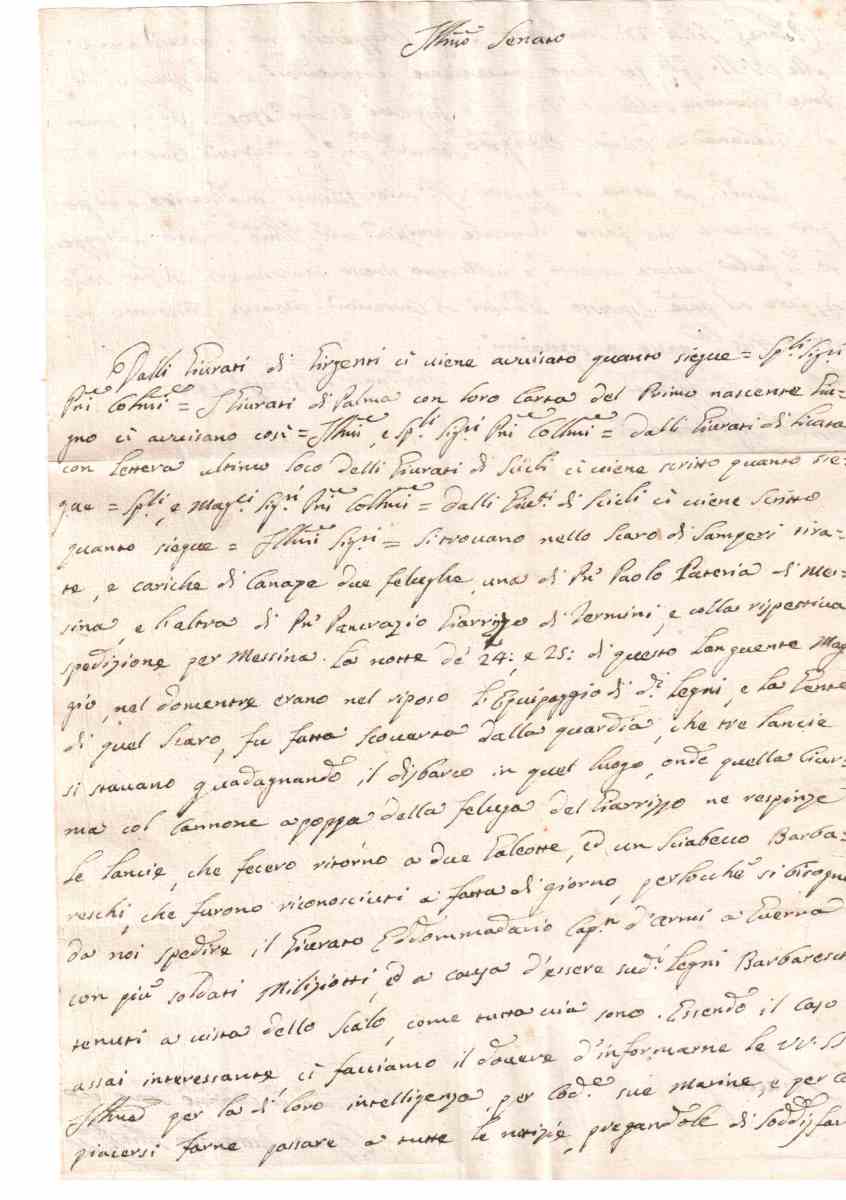 Ill.mo Senato
Dalli Giurati di Girgenti ci viene avvisato quanto siegue = Sp.li Sig.ri
P.ni Col.mi = I Giurati di Palma con loro carta del Primo nascente Giu-
gno ci avvisano così = Ill.mi, e Sp.li Sig.ri P.ni Coll.mi = dalli Giurati di Licata
con lettera ultimo loco delli Giurati di Scicli ci viene scritto quanto sie-
gue = Sp.li, e Mag.ci Sig.ri P.ni Coll.mi = dalli Giu.ti di Scicli ci viene scritto
quanto siegue = Ill.mi Sig.ri = Si trovano nello Scaro di Samperi tira-
te, e cariche di Canape due felughe, una di P.n Paolo Pateria di Mes-
sina, e l'altra di P.n Pancrazio Giarrizzo di Termini, e colla rispettiva
spedizione per Messina. La notte de' 24:, e 25: di questo languente Mag-
gio, nel domentre erano nel riposo l'Equipaggio di d.i Legni, e la Gente
di quel Scaro, fu fatta scoverta dalla guardia, che tre lancie
si stavano guadagnando il disbarco in quel luogo, onde quella Ciur-
ma col Cannone a poppa della feluga del Giarrizzo ne respinze
le lancie, che fecero ritorno a due Galeotte, ed un Sciabecco Barba-
reschi, che furono riconosciuti a fatta di giorno, perlocchè si bisognò
da noi spedire il Giurato Eddommadario Cap.n d'armi a Guerra
con più soldati Miliziotti, ed a causa d'essere sud.i Legni Barbareschi
tenuti a vista dello Scalo, come tutta via sono. Essendo il caso
assai interessante, ci facciamo il dovere d'informarne le VV. SS.
Ill.me per la di loro intelligenza, per cod.e sue Marine, e per
piacersi farne passare a tutte le notizie, pregandole di soddisfar